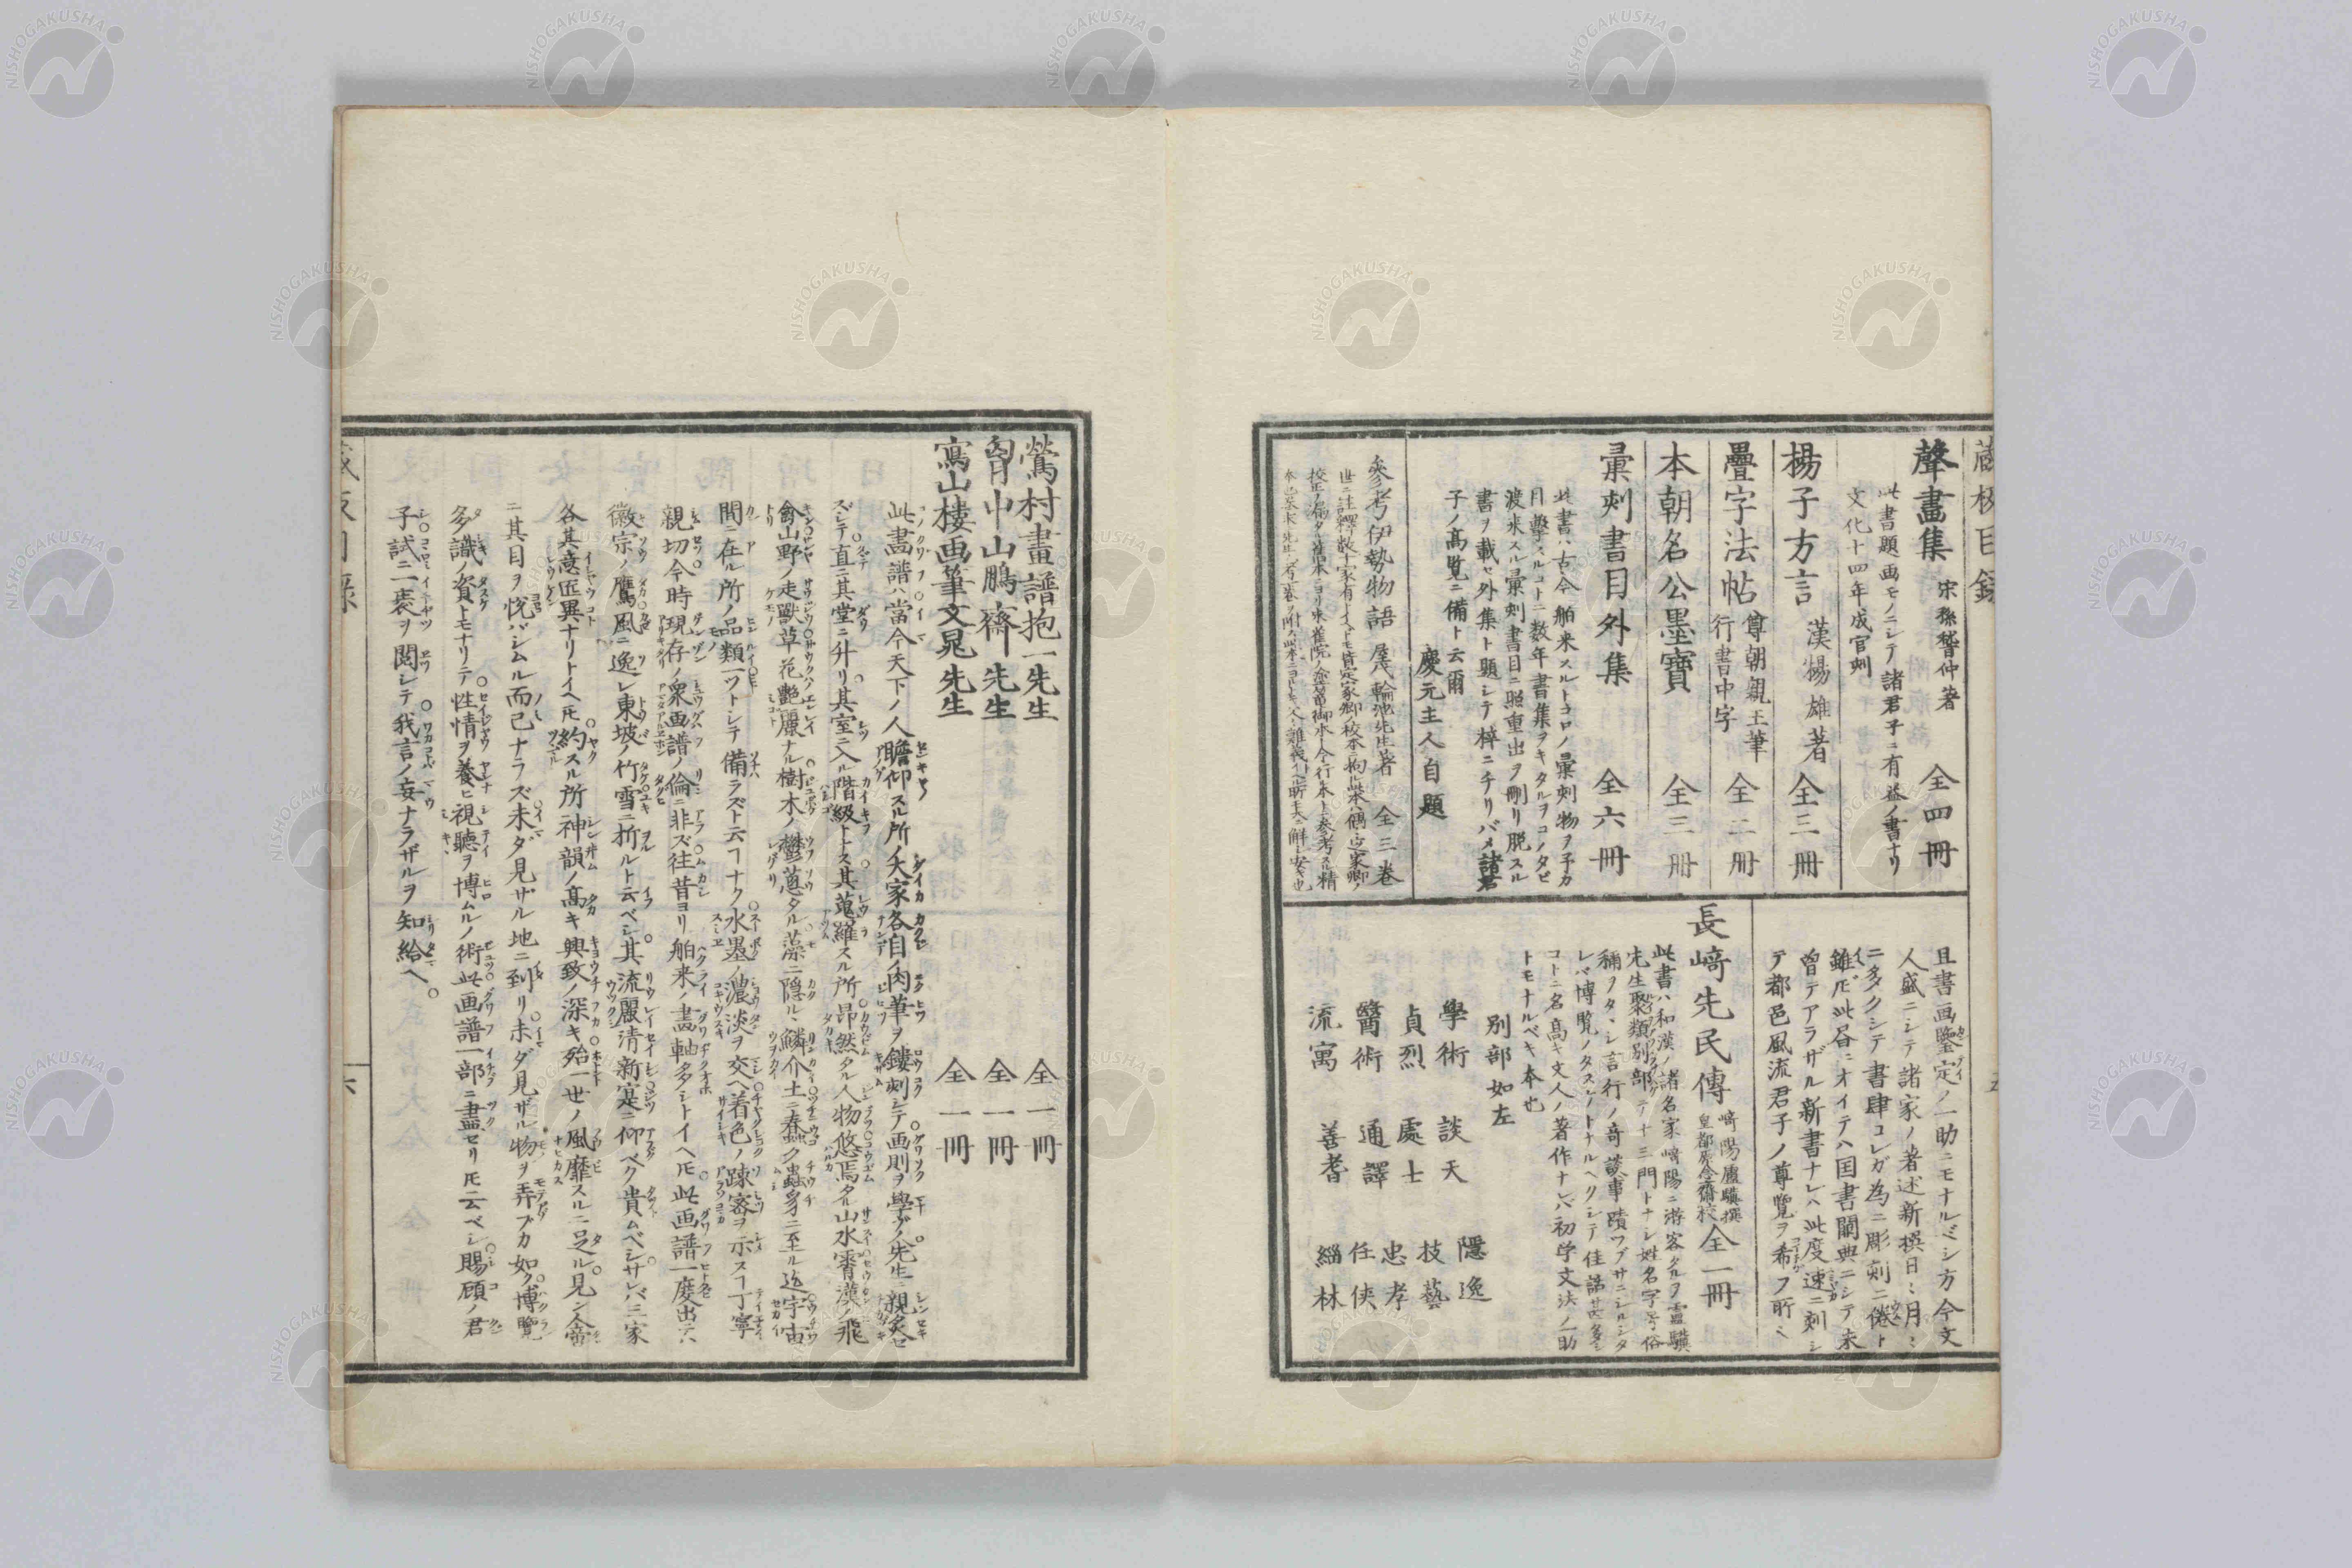 蔵板目録
聲畫集 宋孫紹仲著 全四冊
此書題画モノニシテ諸君子ニ有益ノ書ナリ
文化十四年成官刻
楊子方言 漢楊雄著 全三冊
疊字法帖 尊朝親王筆 行書中字 全二冊
本朝名公墨寶 全三冊
彙刻書目外集 全六冊
此書ハ古今舶来スルトコロノ彙刻物ヲ予カ
目撃スルコトニ数年書集ヲキタルヲコノタビ
渡来スル彙刻書目ニ照重出ヲ刪リ脱スル
書ヲ載セ外集ト題シテ梓ニチリバメ諸君
子ノ高覧ニ備ト云爾
慶元主人自題
参考伊勢物語 屋代輪池先生著 全三巻
且書画鑒定ノ一助ニモナルベシ方今文
人盛ニシテ諸家ノ著述新撰日ニ月ニ
ニ多クシテ書肆コレガ為ニ彫刻ニ倦ト
雖𪜈此各ニオイテハ国書闕典ニシテ未
曽テアラザル新書ナレハ此度速ニ刻シ
テ都邑風流君子ノ尊覧ヲ希フ所ミ
長﨑先民傳 﨑陽盧驥撰 皇都原念齋校 全一冊
此書ハ和漢ノ諸名家﨑陽ニ游客タルヲ盧驥
先生聚類別部テ十三門トナシ姓名字号俗
稱ヲタヾシ言行ノ奇談事蹟ツブサニシルシタ
レバ博覧ノタスケトナルヘクシテ佳話甚多シ
コトニ名高キ文人ノ著作ナレハ初学文法ノ一助
トモナルベキ本也
別部如左
學術 談天 隠逸
貞烈 處士 技藝
醫術 通譯 忠孝
流寓 善耆 任侠
緇林
鶯村畫譜 抱一先生 全一冊
胷中山 鵬齋先生 全一冊
寫山楼画筆 文晁先生 全一冊
此畵譜ハ當今天下ノ人瞻仰スル所ノ大家各自ノ肉筆ヲ鏤刻シテ画則ヲ學ブノ先生ニ親炙セ
ズシテ直ニ其堂ニ升リ其室ニ入ル階級トス其蒐羅スル所昂然タル人物悠焉タル山水霄漢ノ飛
禽山野ノ走獸草花艶麗ナル樹木ノ鬱蔥タル藻ニ隠ルヽ鱗介土ニ蠢ク蟲豸ニ至ル迄宇宙
間ニ在ル所ノ品類一ツトシテ備ラズト云ヿナク水墨ノ濃淡ヲ交ヘ着色ノ踈密ヲ示スヿ丁寧
親切今時現存ノ衆画譜ノ倫ニ非ズ往昔ヨリ舶来ノ畵軸多シトイヘ𪜈此画譜一度出テハ
徽宗ノ鷹風ニ逸レ東坡ノ竹雪ニ折ルト云ベシ其流麗清新寔ニ仰ベク貴ムベシサレバ三家
各其意匠異ナリトイヘ𪜈約スル所神韻ノ高キ興致ノ深キ殆一世ノ風靡スルニ足ル見ン人啻
ニ其目ヲ悦バシムル而已ナラズ未ダ見ザル地ニ到リ未ダ見ザル物ヲ弄ブカ如ク博覽
多識ノ資トモナリテ性情ヲ養ヒ視聽ヲ博ムルノ術此画譜一部ニ盡セリ𪜈云ベシ賜顧ノ君
子試ニ一袠ヲ閲シテ我言ノ妄ナラザルヲ知給ヘ。
NISHOGAKUSHA